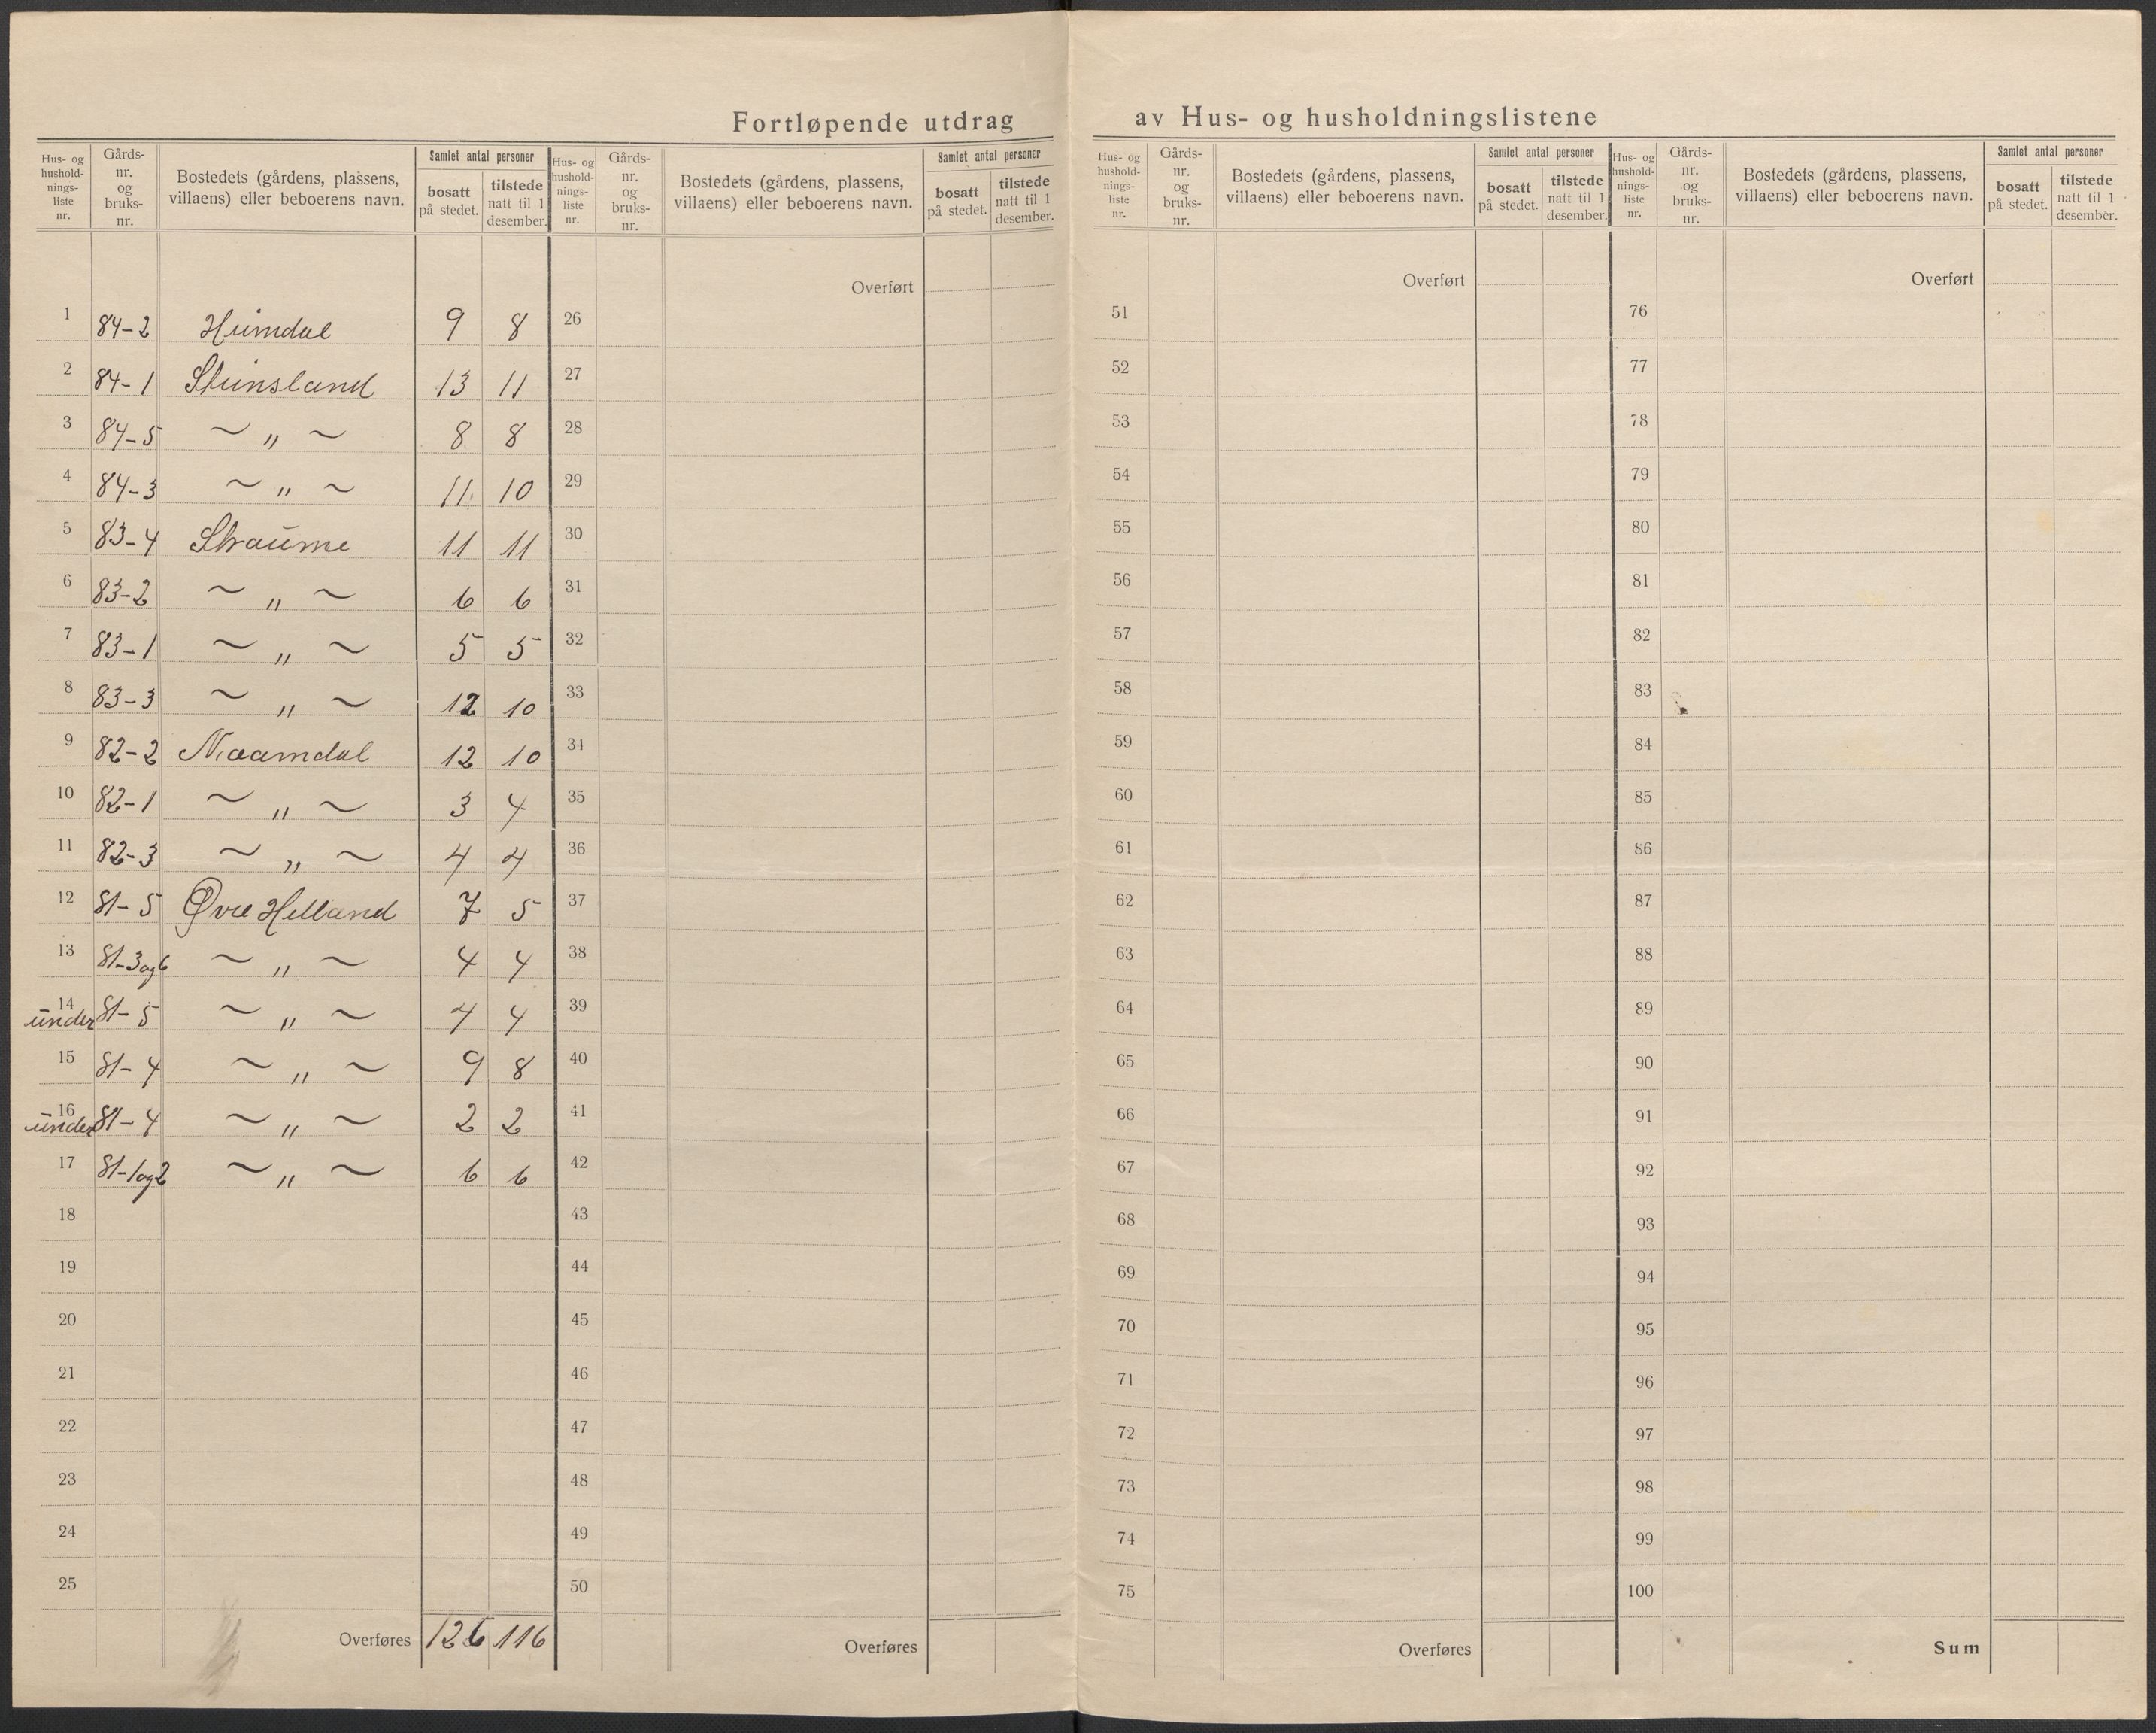 Fortløpende utdrag av Hus- og husholdningslistene
Hus- og hushold-nings-liste nr. | Gårds-nr. og bruks-nr. | Bostedets (gårdens, plassens, villaens) eller beboerens navn. | Samlet antal personer | bosatt på stedet. | tilstede natt til 1 desember.
Hus- og hushold-nings-liste nr. | Gårds-nr. og bruks-nr. | Bostedets (gårdens, plassens, villaens) eller beboerens navn. | Samlet antal personer | bosatt på stedet. | tilstede natt til 1 desember.
Hus- og hushold-nings-liste nr. | Gårds-nr. og bruks-nr. | Bostedets (gårdens, plassens, villaens) eller beboerens navn. | Samlet antal personer | bosatt på stedet. | tilstede natt til 1 desember.
Hus- og hushold-nings-liste nr. | Gårds-nr. og bruks-nr. | Bostedets (gårdens, plassens, villaens) eller beboerens navn. | Samlet antal personer | bosatt på stedet. | tilstede natt til 1 desember.
1 84-2 Heimdal 9 8
2 84-1 Steinsland 13 11
3 84-5 ~ " ~ 8 8
4 84-3 ~ " ~ 11 10
5 83-4 Straume 11 11
6 83-2 ~ " ~ 6 6
7 83-1 ~ " ~ 5 5
8 83-3 ~ " ~ 12 10
9 82-2 12 10
10 82-1 ~ " ~ 3 4
11 82-3 ~ " ~ 4 4
12 81-5 Øvre Helland 7 5
13 81-3og6 ~ " ~ 4 4
14 under 81-5 ~ " ~ 4 4
15 81-4 ~ " ~ 9 8
16 under 81-4 ~ " ~ 2 2
17 81-1og2 ~ " ~ 6 6
18
19
20
21
22
23
24
25
Overføres 126 116
Overført
26
27
28
29
30
31
32
33
34
35
36
37
38
39
40
41
42
43
44
45
46
47
48
49
50
Overføres
Overført
51
52
53
54
55
56
57
58
59
60
61
62
63
64
65
66
67
68
69
70
71
72
73
74
75
Overføres
Overført
76
77
78
79
80
81
82
83
84
85
86
87
88
89
90
91
92
93
94
95
96
97
98
99
100
Sum